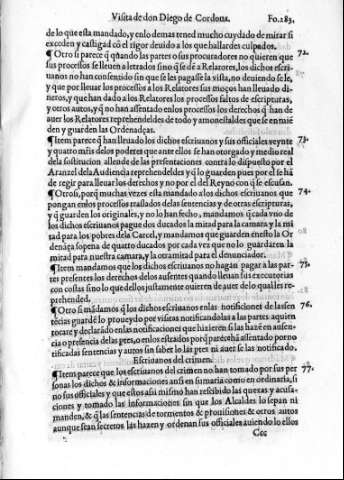 Visita de don Diego de Cordoua. Fo. 283.
de lo que esta mandado, y en lo demas tened mucho cuydado de mirar si
exceden y castigad cõ el rigor deuido a los que hallardes culpados.
¶ Otro si parece q̃ quãndo las partes o sus procuradores no quieren que 72.
sus processos se lleuen a letrados sino q̃ se dẽ a Relatores, los dichos escri-
uanos no han consentido sin que se les pagasse la vista, no deuiendosele,
y que por lleuar los processos a los Relatores sus moços han lleuado di-
neros, y que han dado a los Relatores los processos faltos de escripturas,
y otros autos, y q̃ no han assentado en los processos los derechos q̃ han de
auer los Relatores reprehendeldes de todo y amonestaldes que se enmiẽ
den y guarden las Ordenãças.
¶ Item parece q̃ han lleuado los dichos escriuanos y sus officiales veynte 73.
y quatro mr̃is de los poderes que ante ellos se han otorgado y medio real
dela sostitucion allende de las presentaciones contra lo dispuesto por el
Aranzel dela Audiencia reprehendeldes y q̃ lo guarden pues por el se hã
de regir para lleuar los derechos y no por el del Reyno con q̃ se escusan.
¶ Otrosi, porq̃ muchas vezes esta mandado a los dichos escriuanos que 74.
pongan en los processos traslados de las sentencias y de otras escripturas,
y q̃ guarden los originales, y no lo han fecho, mandamos q̃ cada vno de
los dichos escriuanos pague dos ducados la mitad para la camara y la mi
tad para los pobres dela Carcel, y mandamos que guarden en esto la Or
denãça so pena de quatro ducados por cada vez que no lo guardaren la
mitad para nuestra camara, y la otra mitad para el denunciador.
¶ Item mandamos que los dichos escriuanos no hagan pagar a las par- 75.
tes presentes los derechos delos ausentes quando lleuan sus executorias
con costas sino lo que dellos justamente ouieren de auer de lo qual les re-
prehended,
¶ Otro si mãdamos q̃ los dichos escriuanos enlas notificiones de las sen 76.
tẽcias guardẽ lo proueydo por visitas notificandolas a las partes a quien
tocare y declarãdo en las notificaciones que hizieren si las hazẽ en ausen-
cia o presencia de las ptes, o en los estrados porq̃ pareçe hã assentado por no
tificadas sentencias y autos sin saber lo las ptes ni auer se las notificado,
Escriuanos del crimen.
¶ Item parece que los escriuanos del crimen no han tomado por sus per 77.
sonas los dichos & informaciones ansi en sumaria como en ordinaria, si
no sus officiales y que estos assi mismo han resebido las quexas y acusa-
ciones y tomado las informaciones sin que los Alcaldes lo sepan ni
manden, & q̃ las sentencias de tormentos & prouisiones & otros autos
aunque sean secretos las hazen y ordenan sus officiales auiendo lo ellos
Ccc